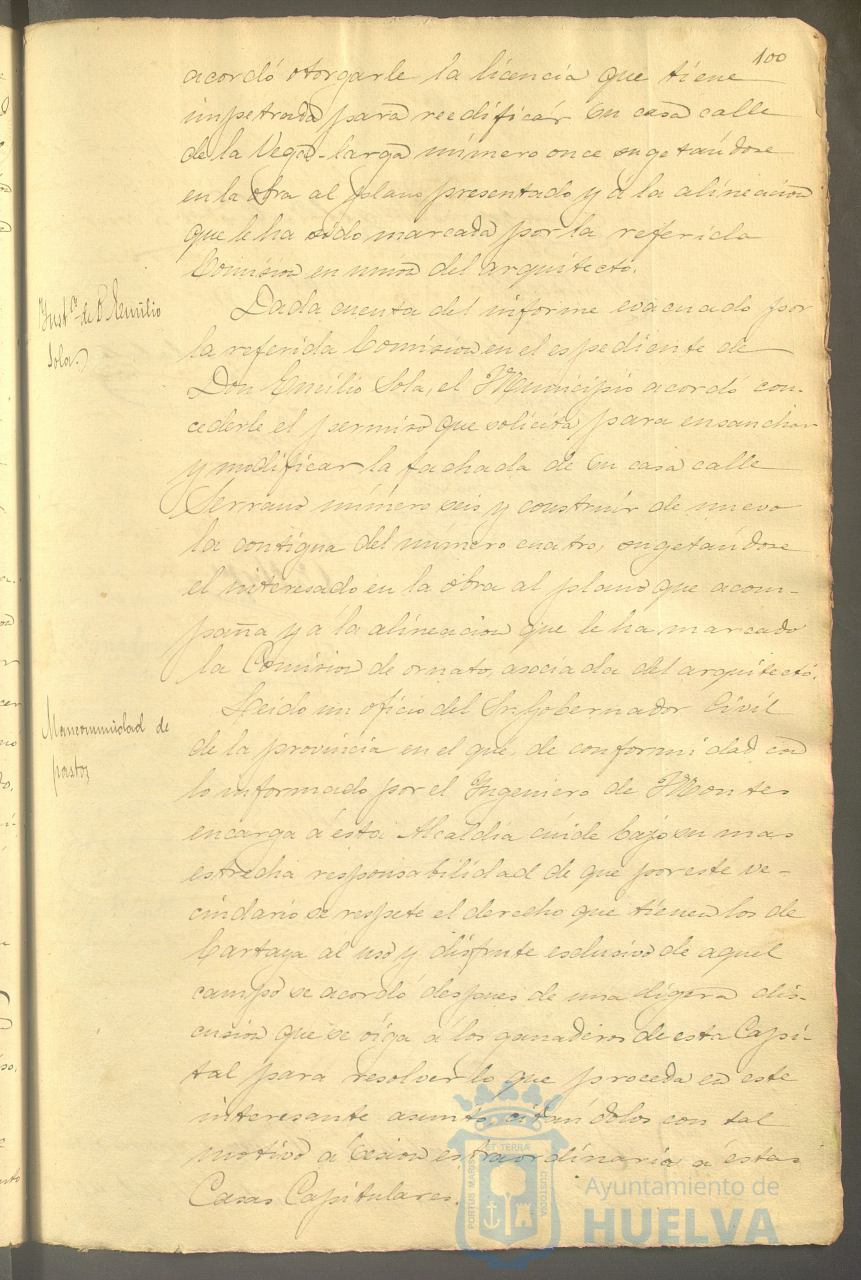 100
acordó otorgarle la licencia que tiene
impetrada para reedificár su casa calle
de la Vega-larga número once sugetándose
en la obra al plano presentado y á la alineacion
que le ha sido marcada por la referida
Comision en union del arquitecto.
Inst.ª de D. Emilio
Sola.
Dada cuenta del informe evacuado por
la referida Comision en el espediente de
Don Emilio Sola, el Municipio acordó con-
cederle el permiso que solicita para ensanchar
y modificar la fachada de su casa calle
Serrano número seis y construir de nuevo
la contigua del número cuatro, sugetándose
el interesado en la obra al plano que acom-
paña y á la alineacion que le ha marcado
la Comision de ornato, asociada del arquitecto.
Mancomunidad de
pastos
Leido un oficio del Sr. Gobernador Civil
de la provincia en el que, de conformidad con
lo informado por el Ingeniero de Montes
encarga á esta Alcaldia cuide bajo su mas
estrecha responsabilidad de que por este ve-
cindario se respete el derecho que tienen los de
Cartaya al uso y disfrute esclusivo de aquel
campo se acordó despues de una ligera dis-
cusion que se oiga á los ganaderos de esta Capi-
tal para resolver lo que proceda en este
interesante asunto, citándolos con tal
motivo á sesion estraordinaria a estas
Casas Capitulares.
PORTUS MARIS ET TERRÆ CUSTODIA
Ayuntamiento de
HUELVA